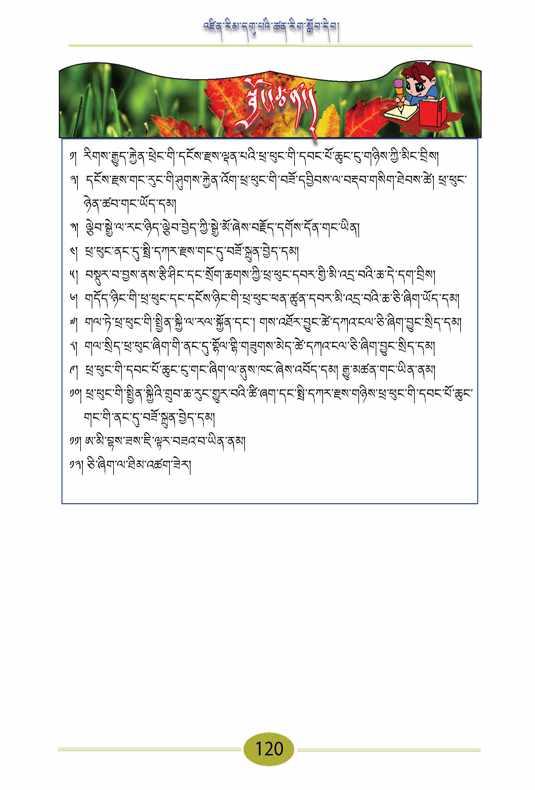 འཛིན་རིམ་དགུ་པའི་ཚན་རིག་སློབ་དེབ།
སྦྱོང་ཚན།
༡། རིགས་རྒྱུད་རྐྱེན་ཕྲེང་གི་དངོས་རྫས་ལྡན་པའི་ཕྲ་ཕུང་གི་དབང་པོ་ཆུང་ངུ་གཉིས་ཀྱི་མིང་བྲིས།
༢། དངོས་རྫས་གང་རུང་གི་ཤུགས་རྐྱེན་འོག་ཕྲ་ཕུང་གི་བཟོ་དབྱིབས་ལ་བརྡབ་གསིག་ཐེབས་ཚེ། ཕྲ་ཕུང་
ཉེན་ཚབ་གང་ཡོད་དམ།
༣། ལྕེབ་སྒྱེ་ལ་རང་ཉིད་ལྕེབ་བྱེད་ཀྱི་སྒྱེ་མོ་ཞེས་བརྗོད་དགོས་དོན་གང་ཡིན།
༤། ཕྲ་ཕུང་ནང་དུ་སྤྲི་དཀར་རྫས་གང་དུ་བཟོ་སྐྲུན་བྱེད་དམ།
༥། བསྡུར་བ་བྱས་ནས་རྩི་ཤིང་དང་སྲོག་ཆགས་ཀྱི་ཕྲ་ཕུང་དབར་གྱི་མི་འདྲ་བའི་ཆ་དེ་དག་བྲིས།
༦། གདོད་ཉིང་གི་ཕྲ་ཕུང་དང་དངོས་ཉིང་གི་ཕྲ་ཕུང་ཕན་ཚུན་དབར་མི་འདྲ་བའི་ཆ་ཅི་ཞིག་ཡོད་དམ།
༧། གལ་ཏེ་ཕྲ་ཕུང་གི་སྤྲིན་སྐྱི་ལ་རལ་སྐྱོན་དང་། གས་འཐོར་བྱུང་ཚེ་དཀའ་ངལ་ཅི་ཞིག་བྱུང་སྲིད་དམ།
༨། གལ་སྲིད་ཕྲ་ཕུང་ཞིག་གི་ནང་དུ་གཟུགས་མེད་ཚེ་དཀའ་ངལ་ཅི་ཞིག་བྱུང་སྲིད་དམ།
༩། ཕྲ་ཕུང་གི་དབང་པོ་ཆུང་ངུ་གང་ཞིག་ལ་ནུས་ཁང་ཞེས་འབོད་དམ། རྒྱུ་མཚན་གང་ཡིན་ནམ།
༡༠། ཕྲ་ཕུང་གི་སྤྲིན་སྐྱིའི་གྲུབ་ཆ་རུང་གྱུར་བའི་ཚི་ཞག་དང་སྤྲི་དཀར་རྫས་གཉིས་ཕྲ་ཕུང་གི་དབང་པོ་ཆུང་
གང་གི་ནང་དུ་བཟོ་སྐྲུན་བྱེད་དམ།
༡༡། ཨ་མི་བྷས་ཟས་ཇི་ལྟར་བཟའ་བ་ཡིན་ནམ།
༡༢། ཅི་ཞིག་ལ་ཐིམ་འཚག་ཟེར།
120